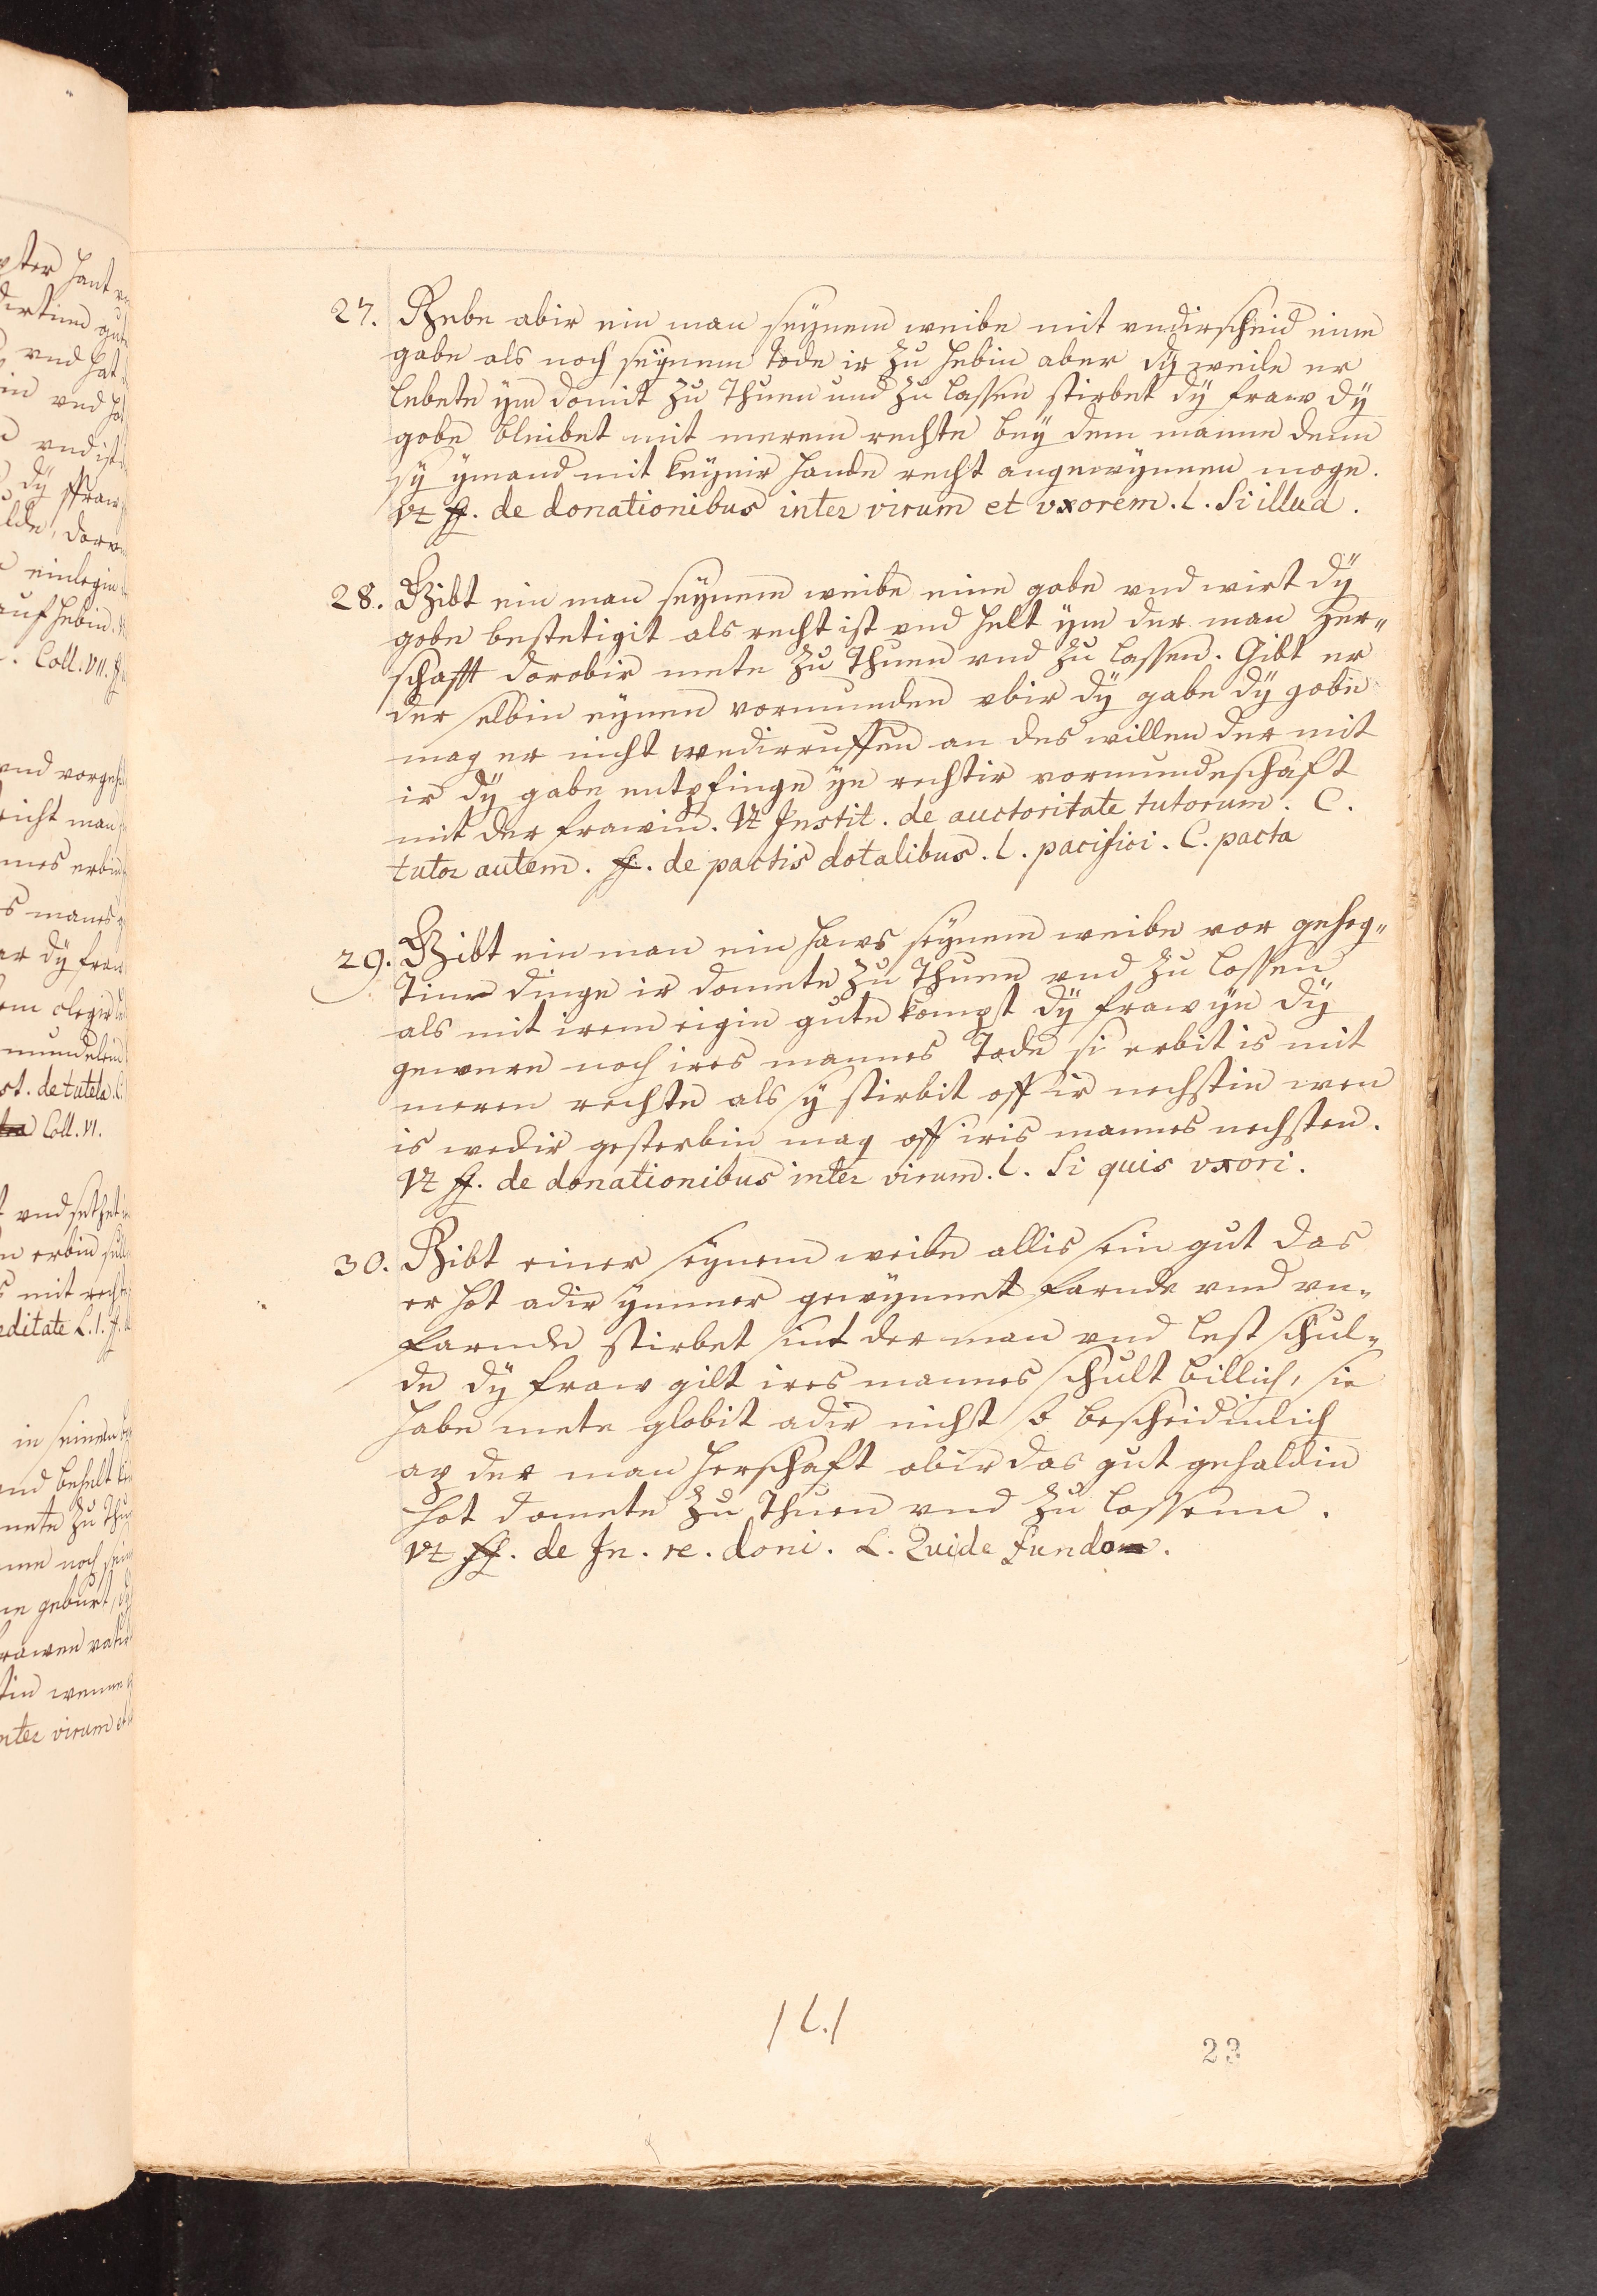 27. Gebe abir ein man seynem weibe mit vndirscheid eine
gabe als noch seynem tode ir zu hebin aber dÿ weile er
lebete ym domit zu thuen und zu lassen stirbet dÿ fraw dÿ
gobe bleibet mit merem rechte beÿ dem manne denn
sÿ ymand mit keynir hande recht angewynnen moge.
Vt ff. de donationibus inter virum et vxorem. l. Si illud.
28. Gibt ein man seynem weibe eine gabe vnd wirt dÿ
gobe bestetigit als recht ist vnd helt ym der man her„
schafft dorobir mete zu thuen vnd zu lassen. Gibt er
der selbin eynen vormunden vbir dÿ gabe dÿ gobe
mag er nicht wedirruffen an des willen der mit
ir dÿ gabe entpfinge yn rechtir vormundeschaft
mit der frawin. Vt Instit. de auctoritate tutorum. C.
tutor autem. ff. de pactis dotalibus. l. pacisici. C. pacta
29. Gibt ein man ein haws seynem weibe vor geheg„
tim dinge ir domete zu thuen vnd zu lossen
als mit irem eigin gute kompst dÿ fraw yn dÿ
gewere noch ires mannes tode si erbit is mit
meren rechte als sÿ stirbit off ir nechstin wen
is wedir gesterbin mag off iris mannes nechsten.
Vt ff. de donationibus inter virum. l. Si quis vxori.
30. Gibt einer seynem weibe allis sein gut das
er hot adir ymmer gewynnet farnde vnd vn„
farnde stirbet sint der man vnd lest schul„
de dÿ fraw gilt ires mannes schult billich, sie
habe mete globit adir nicht so bescheidinlich
ap der man herschaft obir das gut gehaldin
hot domete zu thuen vnd zu lossenn.
Vt ff. de In. re. doni. L. Quide fundo.
/L./
23